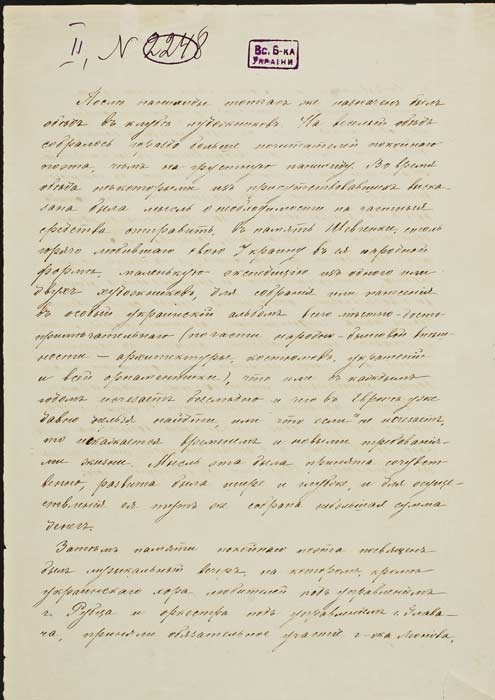 II, N 2248
Вс. Б-ка
України
После панихиды тотчас же назначен был
обед в клубе художников. На веселый обед
собралось гораздо больше почитателей покойного
поэта, чем на грустную панихиду. Во время
обеда некоторыми из присутствовавших выска-
зана была мысль о необходимости на частныя
средства отправить, в память Шевченки, столь
горячо любившаго свою Украину в ея народной
форме, маленькую экспедицию из одного или
двух художников, для собрания или нанесения
в особый украинский альбом всего местно-досто-
примечательнаго (по части народно-бытовой внеш-
ности – архитектуры, костюмов, украшений
и всей орнаментики), что или с каждым
годом исчезает безследно и чего в Европе уже
давно нельзя найти, или что если и не исчезает,
то искажается временем и новыми требования-
ми жизни. Мысль эта была принята сочувст-
венно, развита была шире и глубже, и для осуще-
ствления ея тут же собрана небольшая сумма
денег.
Затем памяти покойнаго поэта посвящен
был музыкальный вечер, на котором, кроме
украинскаго хора любителей под управлением
г. Рубца и оркестра под управлением г. Глава-
ча, приняли обязательное участие г-жа